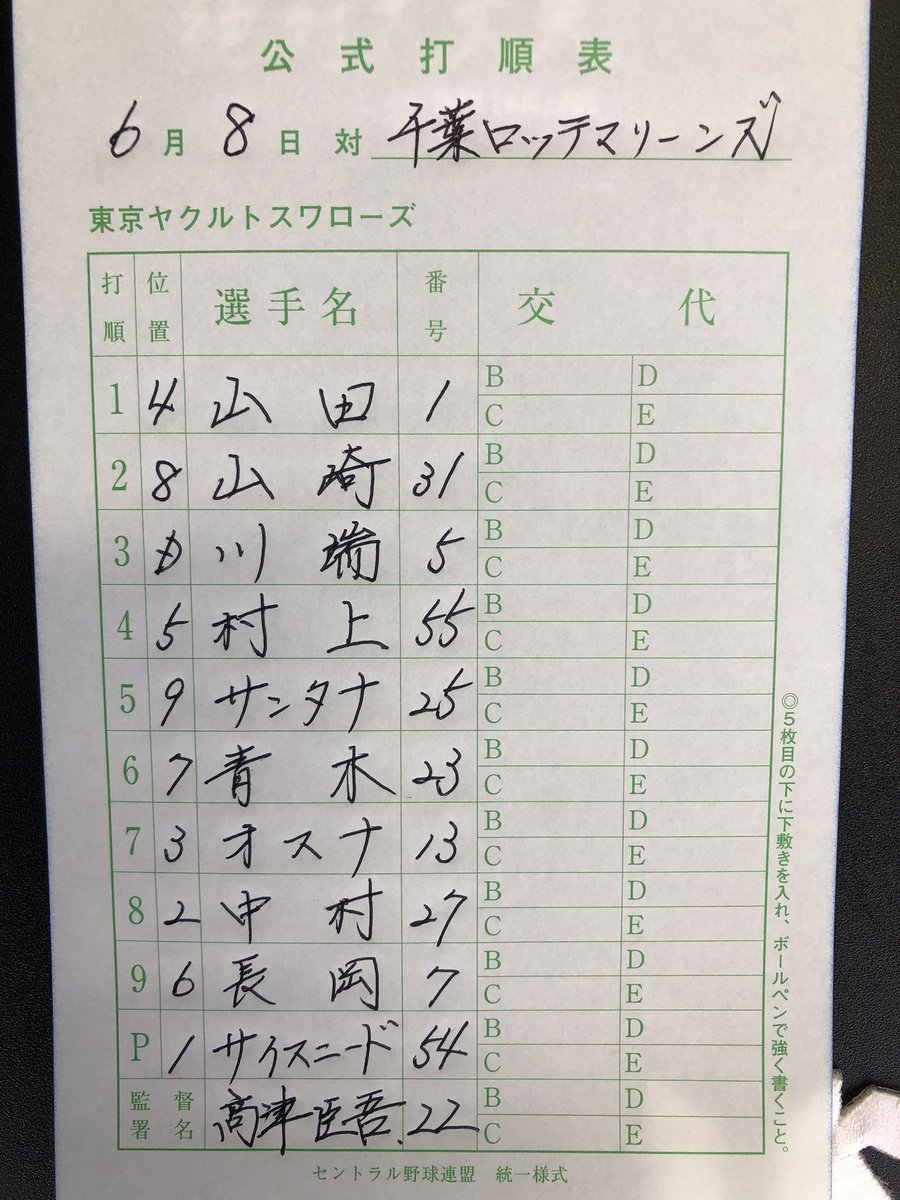 公式打順表
6月8日対 千葉ロッテマリーンズ
東京ヤクルトスワローズ
打順 位置 選手名 番号 交代
1 4 山田 1 B D
C E
2 8 山崎 31 B D
C E
3 D 川端 5 B D
C E
4 5 村上 55 B D
C E
5 9 サンタナ 25 B D
C E
6 7 青木 23 B D
C E
7 3 オスナ 13 B D
C E
8 2 中村 27 B D
C E
9 6 長岡 7 B D
C E
P 1 サイスニード 54 B D
C E
監督署名 高津臣吾 22 B D
C E
◎5枚目の下に下敷きを入れ、ボールペンで強く書くこと。
セントラル野球連盟 統一様式